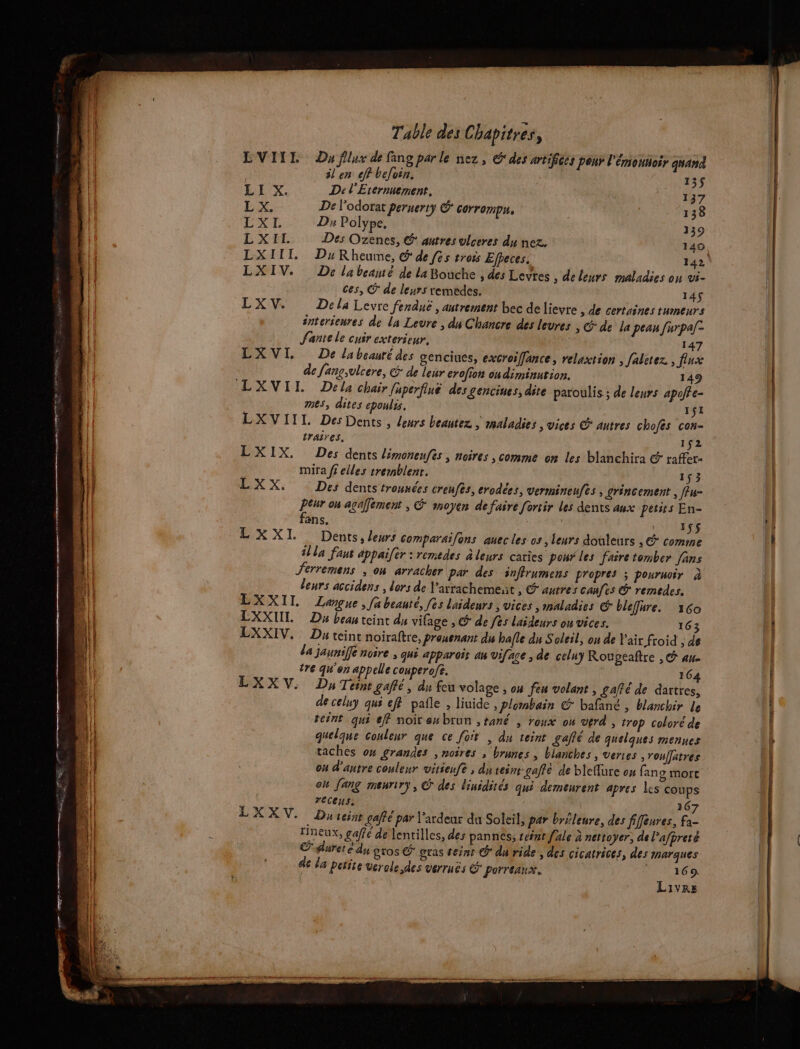 Table des Chapitres,
LVIII. Du flux de sang par le nez, & des artifices pour l'émouuoir quand
il en est besoin. 135
LIX. De l'Eternuement. 137
LX. De l'odorat peruerty & corrompu. 138
LXI. Du Polype. 139
LXII. Des Ozenes, & autres vlceres du nez. 140
LXIII. Du Rheume, & de ses trois Especes. 142
LXIV. De la beauté de la Bouche, des Levres, de leurs maladies ou vi-
ces, & de leurs remedes. 145
LXV. De la Levre fenduë, autrement bec de lievre, de certaines tumeurs
interieures de la Levre, du Chancre des levres, & de la peau surpas-
sante le cuir exterieur. 147
LXVI. De la beauté des gencives, excroissance, relaxtion, saletez, flux
de sang, vlcere, & de leur erosion ou diminution. 149
LXVII. De la chair superfluë des gencines, dite paroulis; de leurs aposte-
mes, dites epoulis. 151
LXVIII. Des Dents, leurs beautez, maladies, vices & autres choses con-
traires. 152
LXIX. Des dents limoneuses, noires, comme on les blanchira & raffer-
mira si elles tremblent. 153
LXX. Des dents trouuées creuses, erodées, vermineuses, grincement, stu-
peur ou agassement, & moyen de faire sortir les dents aux petits En-
fans. 155
LXXI. Dents, leurs comparaisons auec les os, leurs douleurs, & comme
il la faut appaiser: remedes à leurs caries pour les faire tomber sans
ferremens, ou arracher par des instrumens propres; pourvoir à
leurs accidens, lors de l'arrachement, & autres causes & remedes.
LXXII. Langue, sa beauté, ses laideurs, vices, maladies & blessure. 160
LXXIII. Du beau teint du visage, & de ses laideurs ou vices. 163
LXXIV. Du teint noirastre, prouenant du hasle du Soleil, ou de l'air froid; de
la jaunisse noire, qui apparoit au visage, de celuy Rougeastre, & au-
tre qu'on appelle couperose. 164
LXXV. Du Teint gasté, du feu volage, ou feu volant, gasté de dartres,
de celuy qui est pasle, liuide, plombain & basané, blanchir le
teint qui est noir ou brun, tané, roux ou verd, trop coloré de
quelque couleur que ce soit, du teint gasté de quelques menues
taches ou grandes, noires, brunes, blanches, vertes, roussatres
ou d'autre couleur vitieuse, du teint gasté de blessure ou sang mort
ou sang meurtry, & des liuidités qui demeurent apres les coups
receus. 167
LXXV. Du teint gasté par l'ardeur du Soleil, par brûleure, des fisseures, fa-
rineux, gasté de lentilles, des pannes, teint sale à nettoyer, de l'aspreté
& dureté du gros & gras teint & du ride, des cicatrices, des marques
de la petite verole, des verruës & porreaux. 169
LIVRE